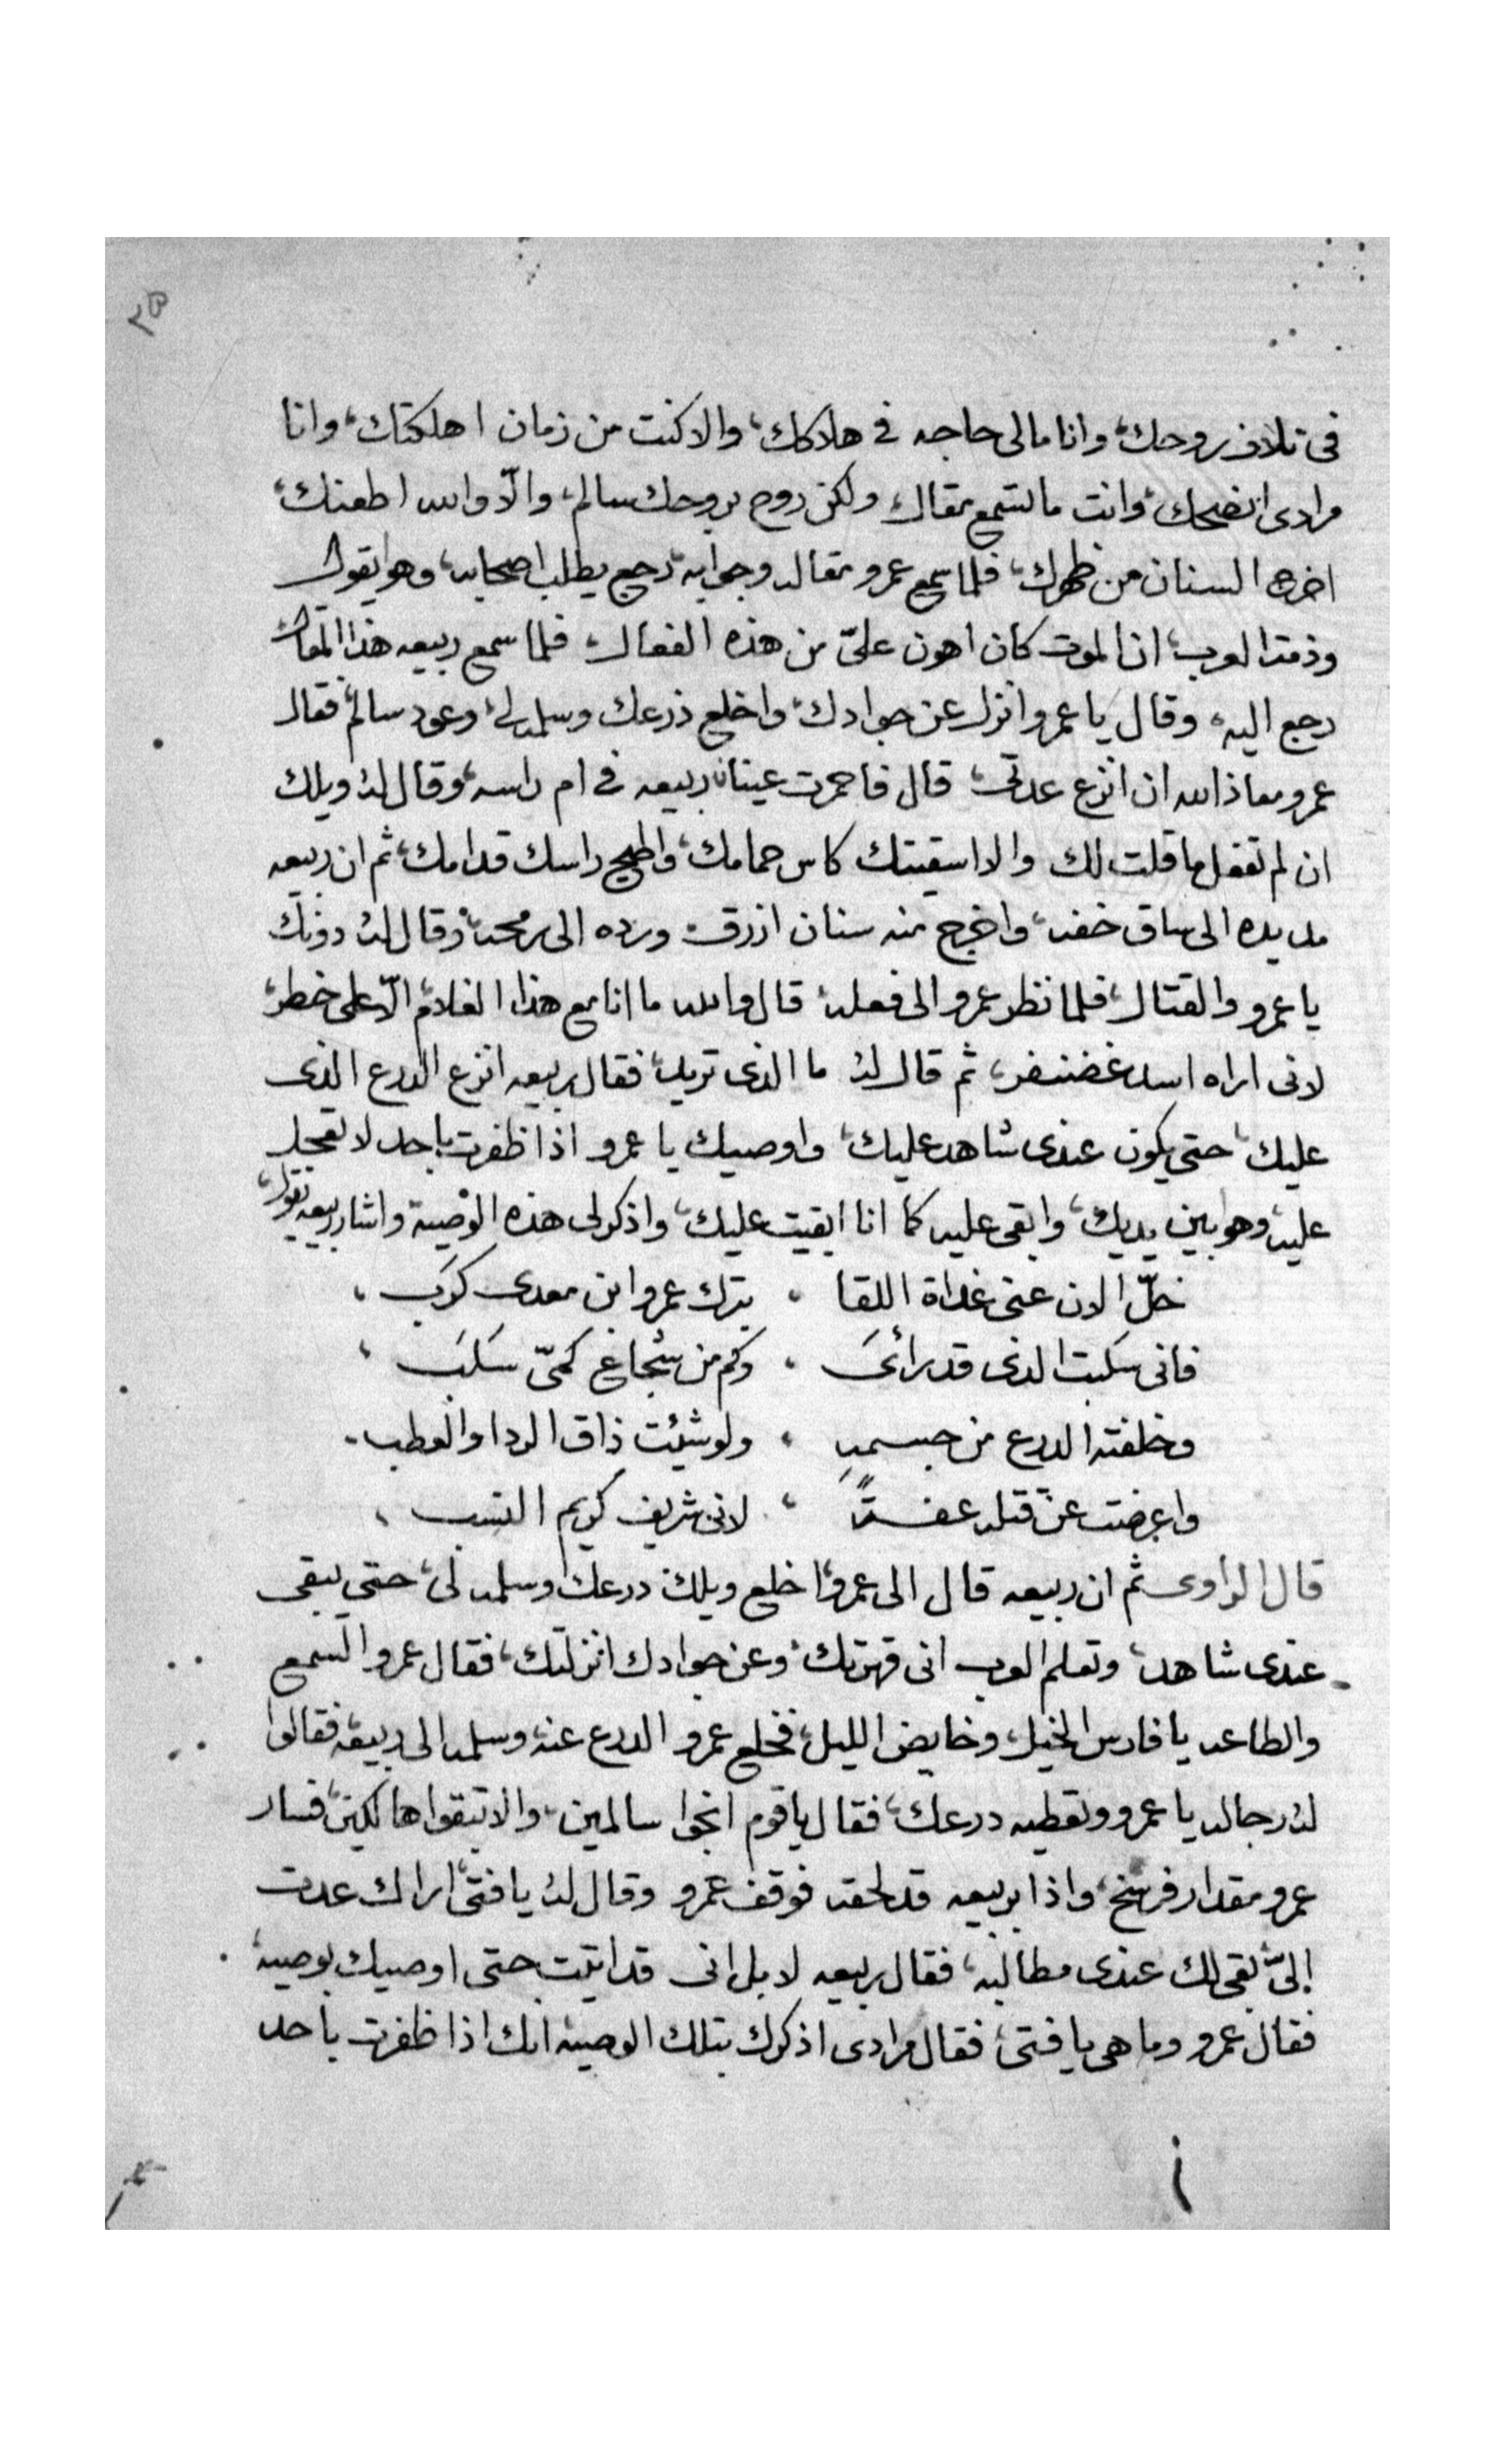 ٢٥
فى تلاف روحك، وانا مالى حاجه فى هلاكك، والا كنت من زمان اهلكتك، وانا
مرادى انضحك، وانت ما تسمع مقال، ولكن روح بروحك سالم، والّا والله اطعنك،
اخرج السنان من ظهرك، فلما سمع عمرو مقاله وجوابه، رجع يطلب اصحابه، وهو يقول
وذمة العرب، ان الموت كان اهون علىّ من هذه الفعال، فلما سمع ربيعه هذا المقال،
رجع اليه، وقال يا عمرو انزل عن جوادك، واخلع ذرعك وسلمه لى، وعود سالم، فقال
عمرو معاذ الله ان انزع عدتى، قال فاحمرت عينان ربيعه فى ام راسه، وقال له ويلك
ان لم تفعل ما قلت لك والا اسقيتك كاس حمامك، واطيح راسك قدامك، ثم ان ربيعه
مد يده الى ساق خفه، واخرج منه سنان ازرق ورده الى رمحه، وقال له دونك
يا عمرو والقتال، فلما نظر عمرو الى فعله، قال والله ما انا مع هذا الغلام الّا على خطر،
لانى اراه اسد غضنفر، ثم قال له ما الذى تريد، فقال ربيعه انزع الدرع الذى
عليك، حتى يكون عندى شاهد عليك، واوصيك يا عمرو اذا ظفرت باحد لا تعجل
عليه، وهو بين يديك، وابقى عليه كما انا ابقيت عليك، واذكر لى هذه الوصية واشار ربيعه يقول،
خلّ الان عنى غداة اللقا ، بترك عمرو ابن معدى كرب ،
فانى سكبت الذى قد رائىَ ، وكم من شجاعٍ كمىّ سَلَبَ ،
وخلفته الدرع من جسمهِ ، ولو شئت ذاق الردا والعطب
واعرضت عن قتله عفـةً ، لانى شريف كريم النسب ،
قال الراوى ثم ان ربيعه قال الى عمرو، اخلع ويلك درعك وسلمه لى، حتى يبقى
عندى شاهد، وتعلم العرب انى قهرتك، وعن جوادك انزلتك، فقال عمرو السمع
والطاعه يا فارس الخيل، وخايض الليل، فخلع عمرو الدرع عنه، وسلمه الى ربيعه، فقالوا
له رجاله يا عمرو وتعطيه درعك، فقال يا قوم انجوا سالمين، والا تبقوا هالكين، فسار
عمرو مقدار فرسخ، واذا بربيعه قد لحقه فوقف عمرو وقال له يا فتىً اراك عدت
إلىّ، بقى لك عندى مطالبه، فقال ربيعه لا بل انى قد اتيت حتى اوصيك بوصيه،
فقال عمرو وما هى يا فتى، فقال مرادى اذكرك بتلك الوصيه انك اذا ظفرت باحد